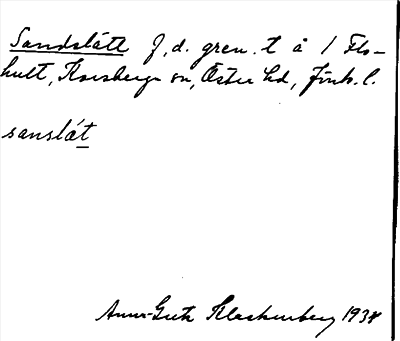 Sandslätt f, d. gren. t å 1 Flo-
hult, Korsberga sn, Östra hd, Jönk. l.
sanslát
Anna-Greta Klackenberg 1934